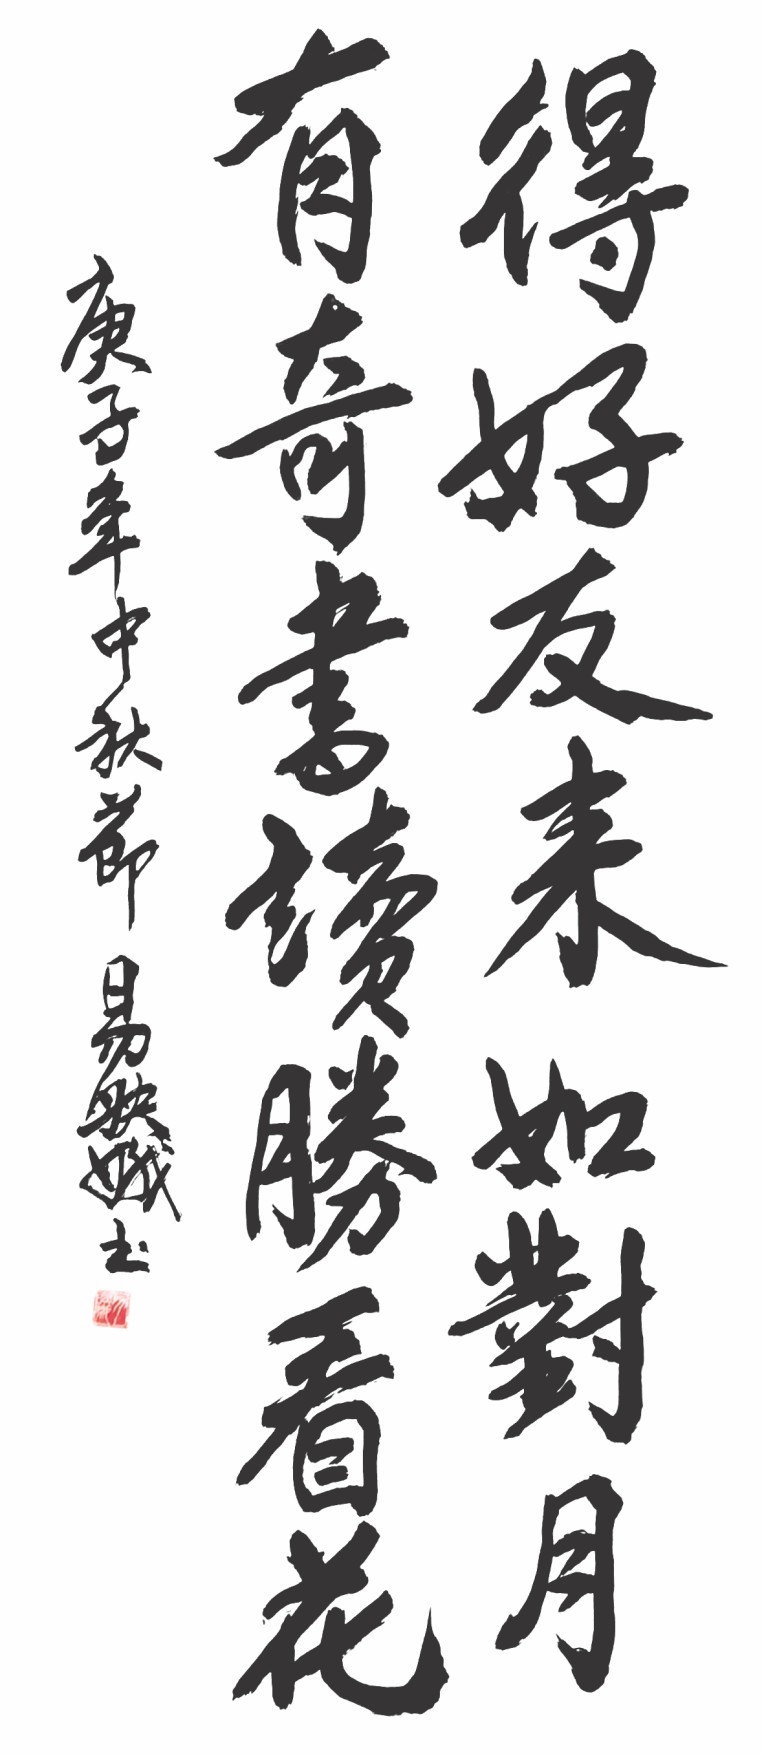 得好友来如對月
有奇書讀勝看花
庚子年中秋節 易映娥书